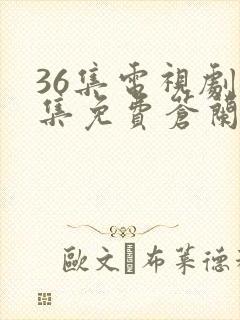 36集電視劇
集免費蒼蘭
歐文·布萊德